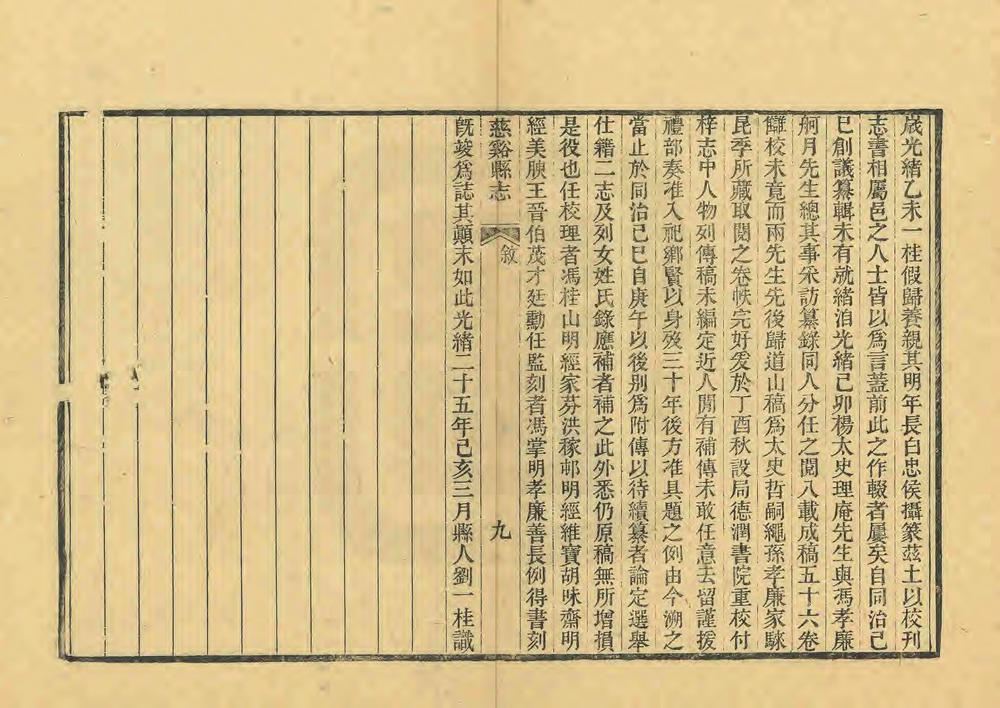 歲光緒乙未一桂假歸養親其明年長白忠侯攝篆茲土以校刊
志書相屬邑之人士皆以爲言蓋前此之作輟者屢矣自同治己
巳創議纂輯未有就緒洎光緒己卯楊太史理庵先生與馮孝廉
舸月先生總其事釆訪纂錄同人分任之閱八載成稿五十六卷
讎校未竟而兩先生先後歸道山稿爲太史哲嗣繩孫孝廉家騋
昆季所藏取閱之卷帙完好爰於丁酉秋設局德潤書院重校付
梓志中人物列傳稿未編定近人閒有補傳未敢任意去留謹援
禮部奏准入祀鄉賢以身歿三十年後方准具題之例由今溯之
當止於同治己巳自庚午以後別爲附傳以待續纂者論定選舉
仕籍二志及列女姓氏錄應補者補之此外悉仍原稿無所增損
是役也任校理者馮桂山明經家芬洪稼邨明經維寶胡昧齋明
經美腴王晉伯茂才廷勳任監刻者馮掌明孝廉善長例得書刻
慈谿縣志 敘 九
旣竣爲誌其顚末如此光緒二十五年己亥三月縣人劉一桂識